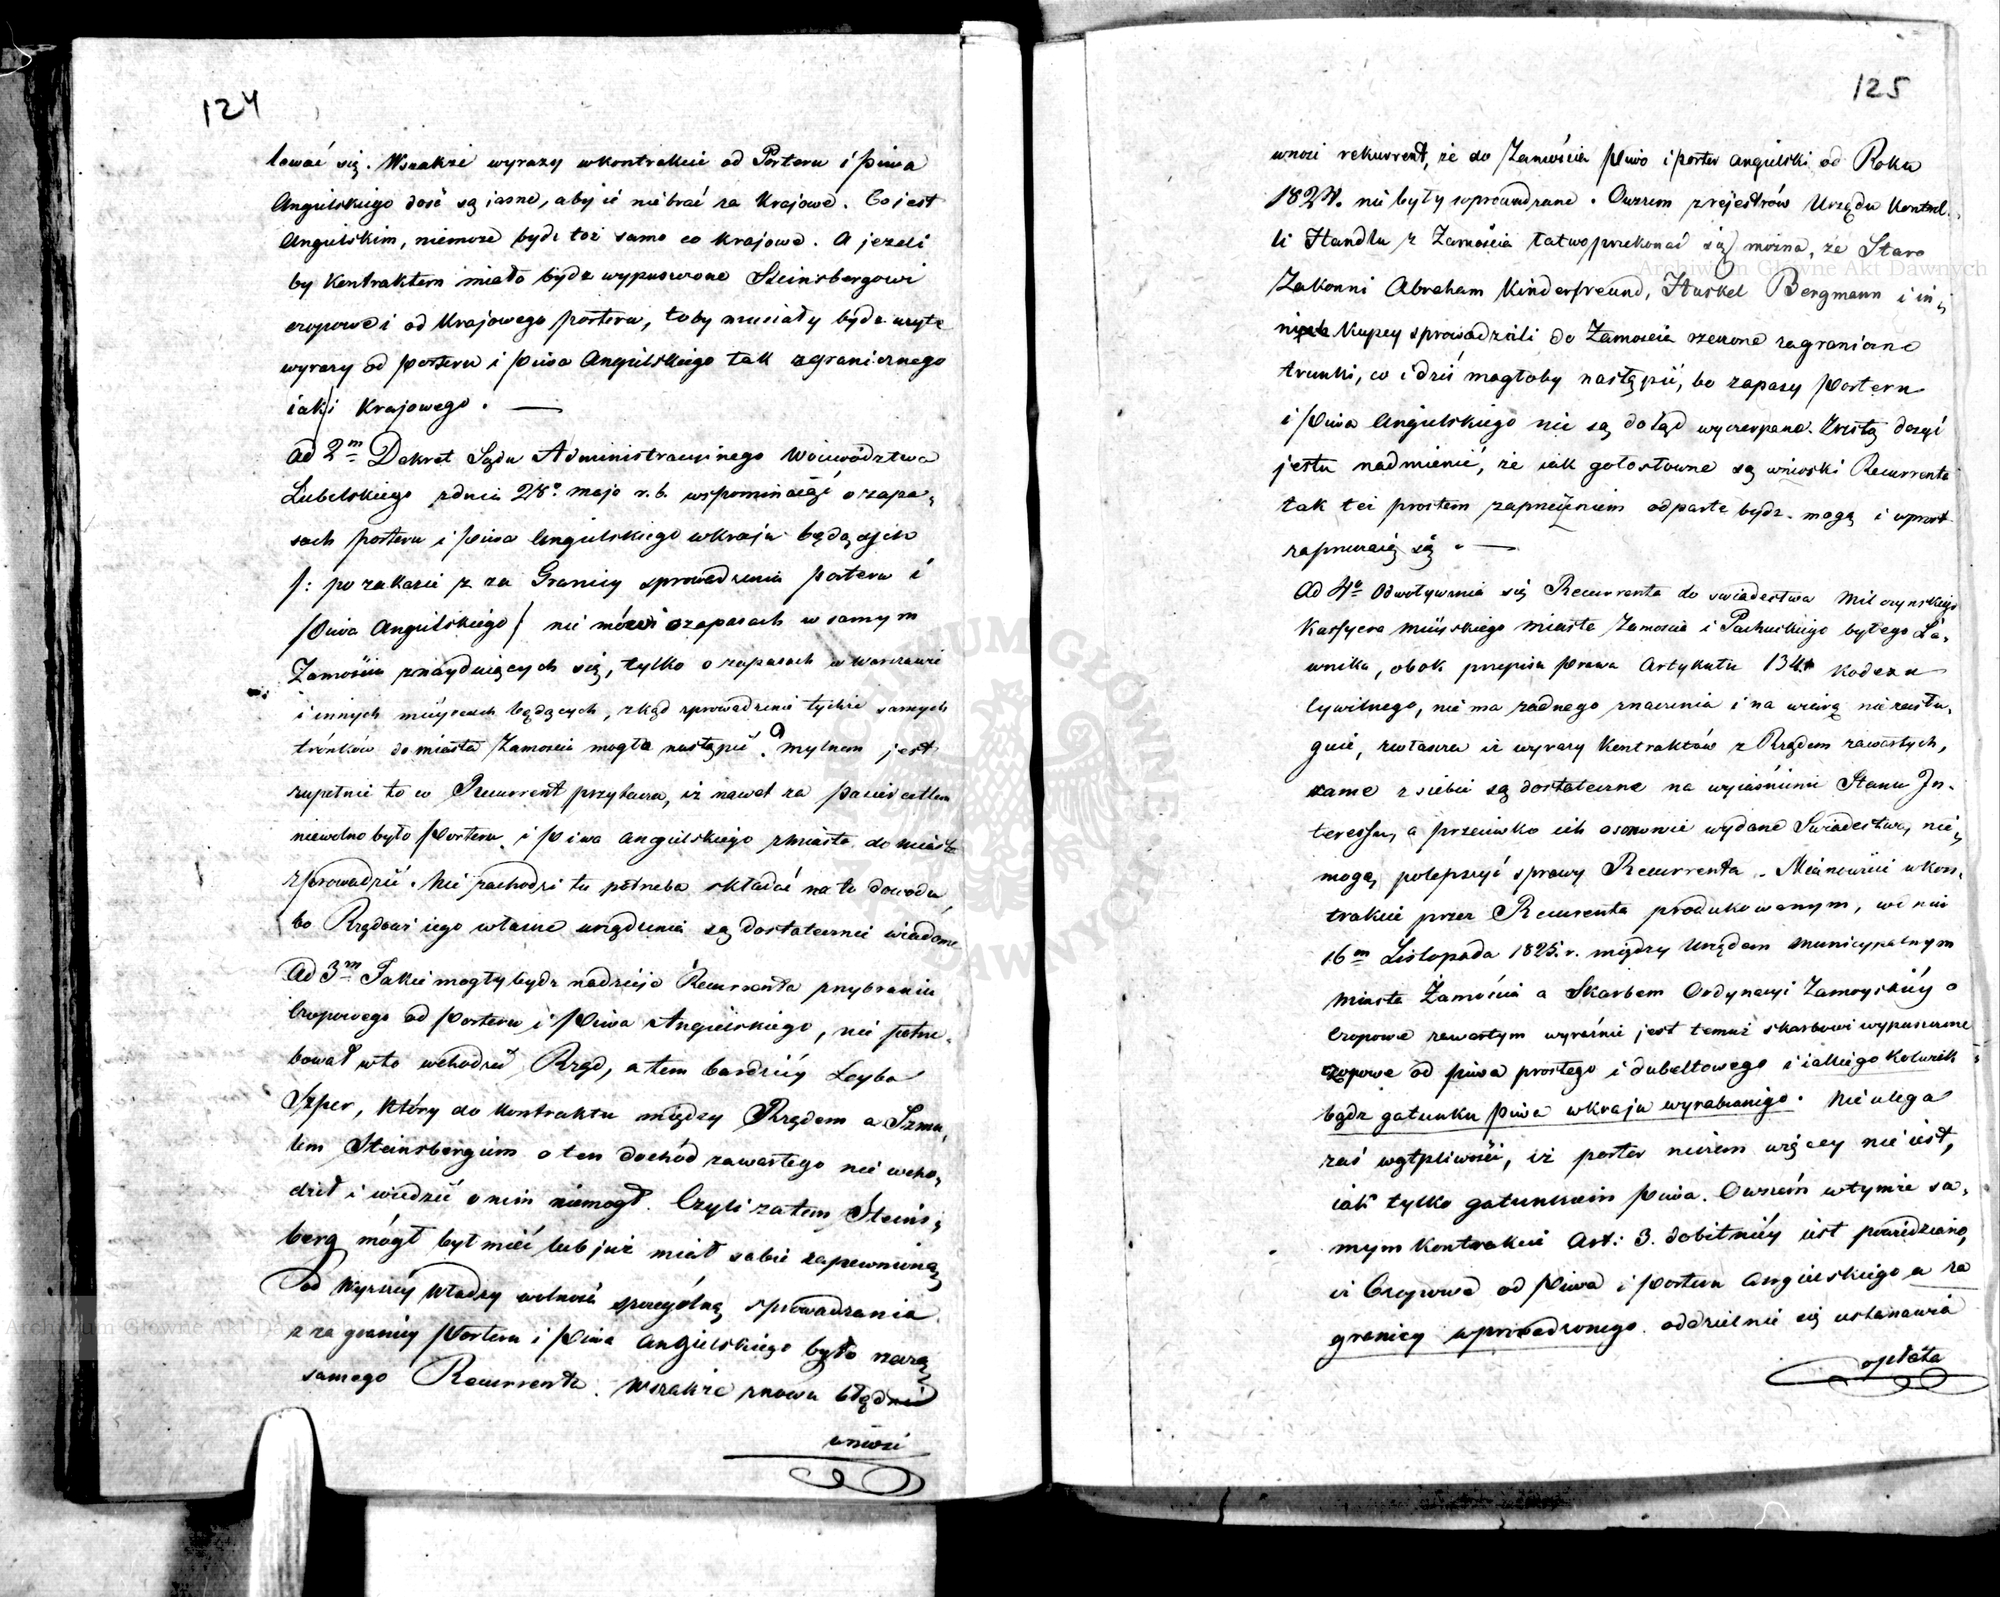 124
lować się. Wszakże wyrazy w kontrakcie od Porteru i piwa
Angielskiego dość są jasne, aby ie nie brać za Krajowe. Co jest
Angielskim, niemoże bydź toż samo co krajowe. A jeżeli
by Kontraktem miało bydź wypuszczone Steinsbergowi
czopowe i od Krajowego porteru, to by musiały bydź użyte
wyrazy od porteru i piwa Angielskiego tak zagranicznego
iak i Krajowego. —
Ad 2m Dekret Sądu Administracyjnego Woiewództwa
Lubelskiego z dnia 28o maja r. b. wspominaiąć o zapa-
sach porteru i piwa Angielskiego w kraju będących
/: po zakazie z za Granicy sprowadzenia porteru i
piwa Angielskiego / nie mówi o zapasach w samym
Zamościu znayduiących się, tylko o zapasach w Warszawie
i innych mieyscach będących, zkąd sprowadzenie tychże samych
trónków do miasta Zamościa mogło nastąpić. Mylnem jest
zupełnie to co Recurrent przytacza, iż nawet za pasierceltem
niewolno było Porteru i Piwa angielskiego z miasta do miasta
sprowadzić. Nie zachodzi tu potrzeba składać na to dowodu
bo Rządowi iego własne urządzenia są dostatecznie wiadome
Ad 3m Jakie mogły bydź nadzieje Recurrenta przy braniu
Czopowego od Porteru i Piwa Angielskiego, nie potrze-
bował w to wchodzić Rząd, a tem bardziéy Leyba
Szper, który do kontraktu między Rządem a Szmu-
lem Steinsbergiem o ten dochód zawartego nie wcho-
dził i wiedzić o nim niemogł. Czyli zatem Steins-
berg mógł być mieć lub już miał sobie zapewnioną
od Wyższéy Władzy wolność szczególną sprowadzania
z za granicy Porteru i Piwa angielskiego było rzeczą
samego Recurrenta. Wszakże znowu błędnie
wnosi
125
wnosi rekurrent, że do Zamościa piwo i porter angielski od Roku
1824. nie były sprowadzane. Owszem z rejestrów Urzędu Kontrol-
li Handlu z Zamościa łatwo przekonać się można, że Staro
Zakonni Abraham Kinderfreund, Huskel Bergmann i in-
ni Kupcy sprowadzali do Zamościa rzeczone zagraniczne
trunki, co i dziś mogłoby nastąpić, bo zapasy porteru
i piwa Angielskiego nie są dotąd wyczerpane. Zresztą dosyć
jestu nadmienić, że iak gołosłowne są wnioski Recurrenta
tak też prostem zaprzeczeniem odparte bydź mogą i wprost
zaprzeczaią się. —
Ad 4o Odwoływania się Recurrenta do świadectwa Milczynskiego
Kassyera mieyskiego miasta Zamościa i Pachuckiego byłego Ła-
wnika, obok przepisu prawa Artykułu 1341 Kodexu
Cywilnego, nie ma żadnego znaczenia i na wiarę nie zasłu-
guie, zwłaszcza iż wyrazy Kontraktów z Rządem zawartych,
same z siebie są dostateczne na wyiaśnienie Stanu In-
teressu, a przeciwko ich osnowie wydane Świadectwa, nie-
mogą polepszyć sprawy Recurrenta. Mianowicie w kon-
trakcie przez Recurrenta produkowanym, w dniu
16m Listopada 1825. r. między Urzędem Municypalnym
Miasta Zamościa a Skarbem Ordynacyi Zamoyskiéy o
Czopowe zawartym wyraźnie jest temuż skarbowi wypuszczone
czopowe od piwa prostego i dubeltowego i iakiego kolwiek
bądź gatunku piwa w kraju wyrabianego. Nie ulega
zaś wątpliwości, iż porter niczem więcey nie iest,
iak tylko gatunkiem piwa. Owszem w tymże sa-
mym kontrakcie Art: 3. dobitniéy iest powiedziano,
iż Czopowe od Piwa i Porteru Angielskiego z za
granicy wprowadzonego oddzielnie się ustanawia
opłata
Archiwum Główne Akt Dawnych
Archiwum Główne Akt Dawnych
ARCHIWUM GŁÓWNE AKT DAWNYCH